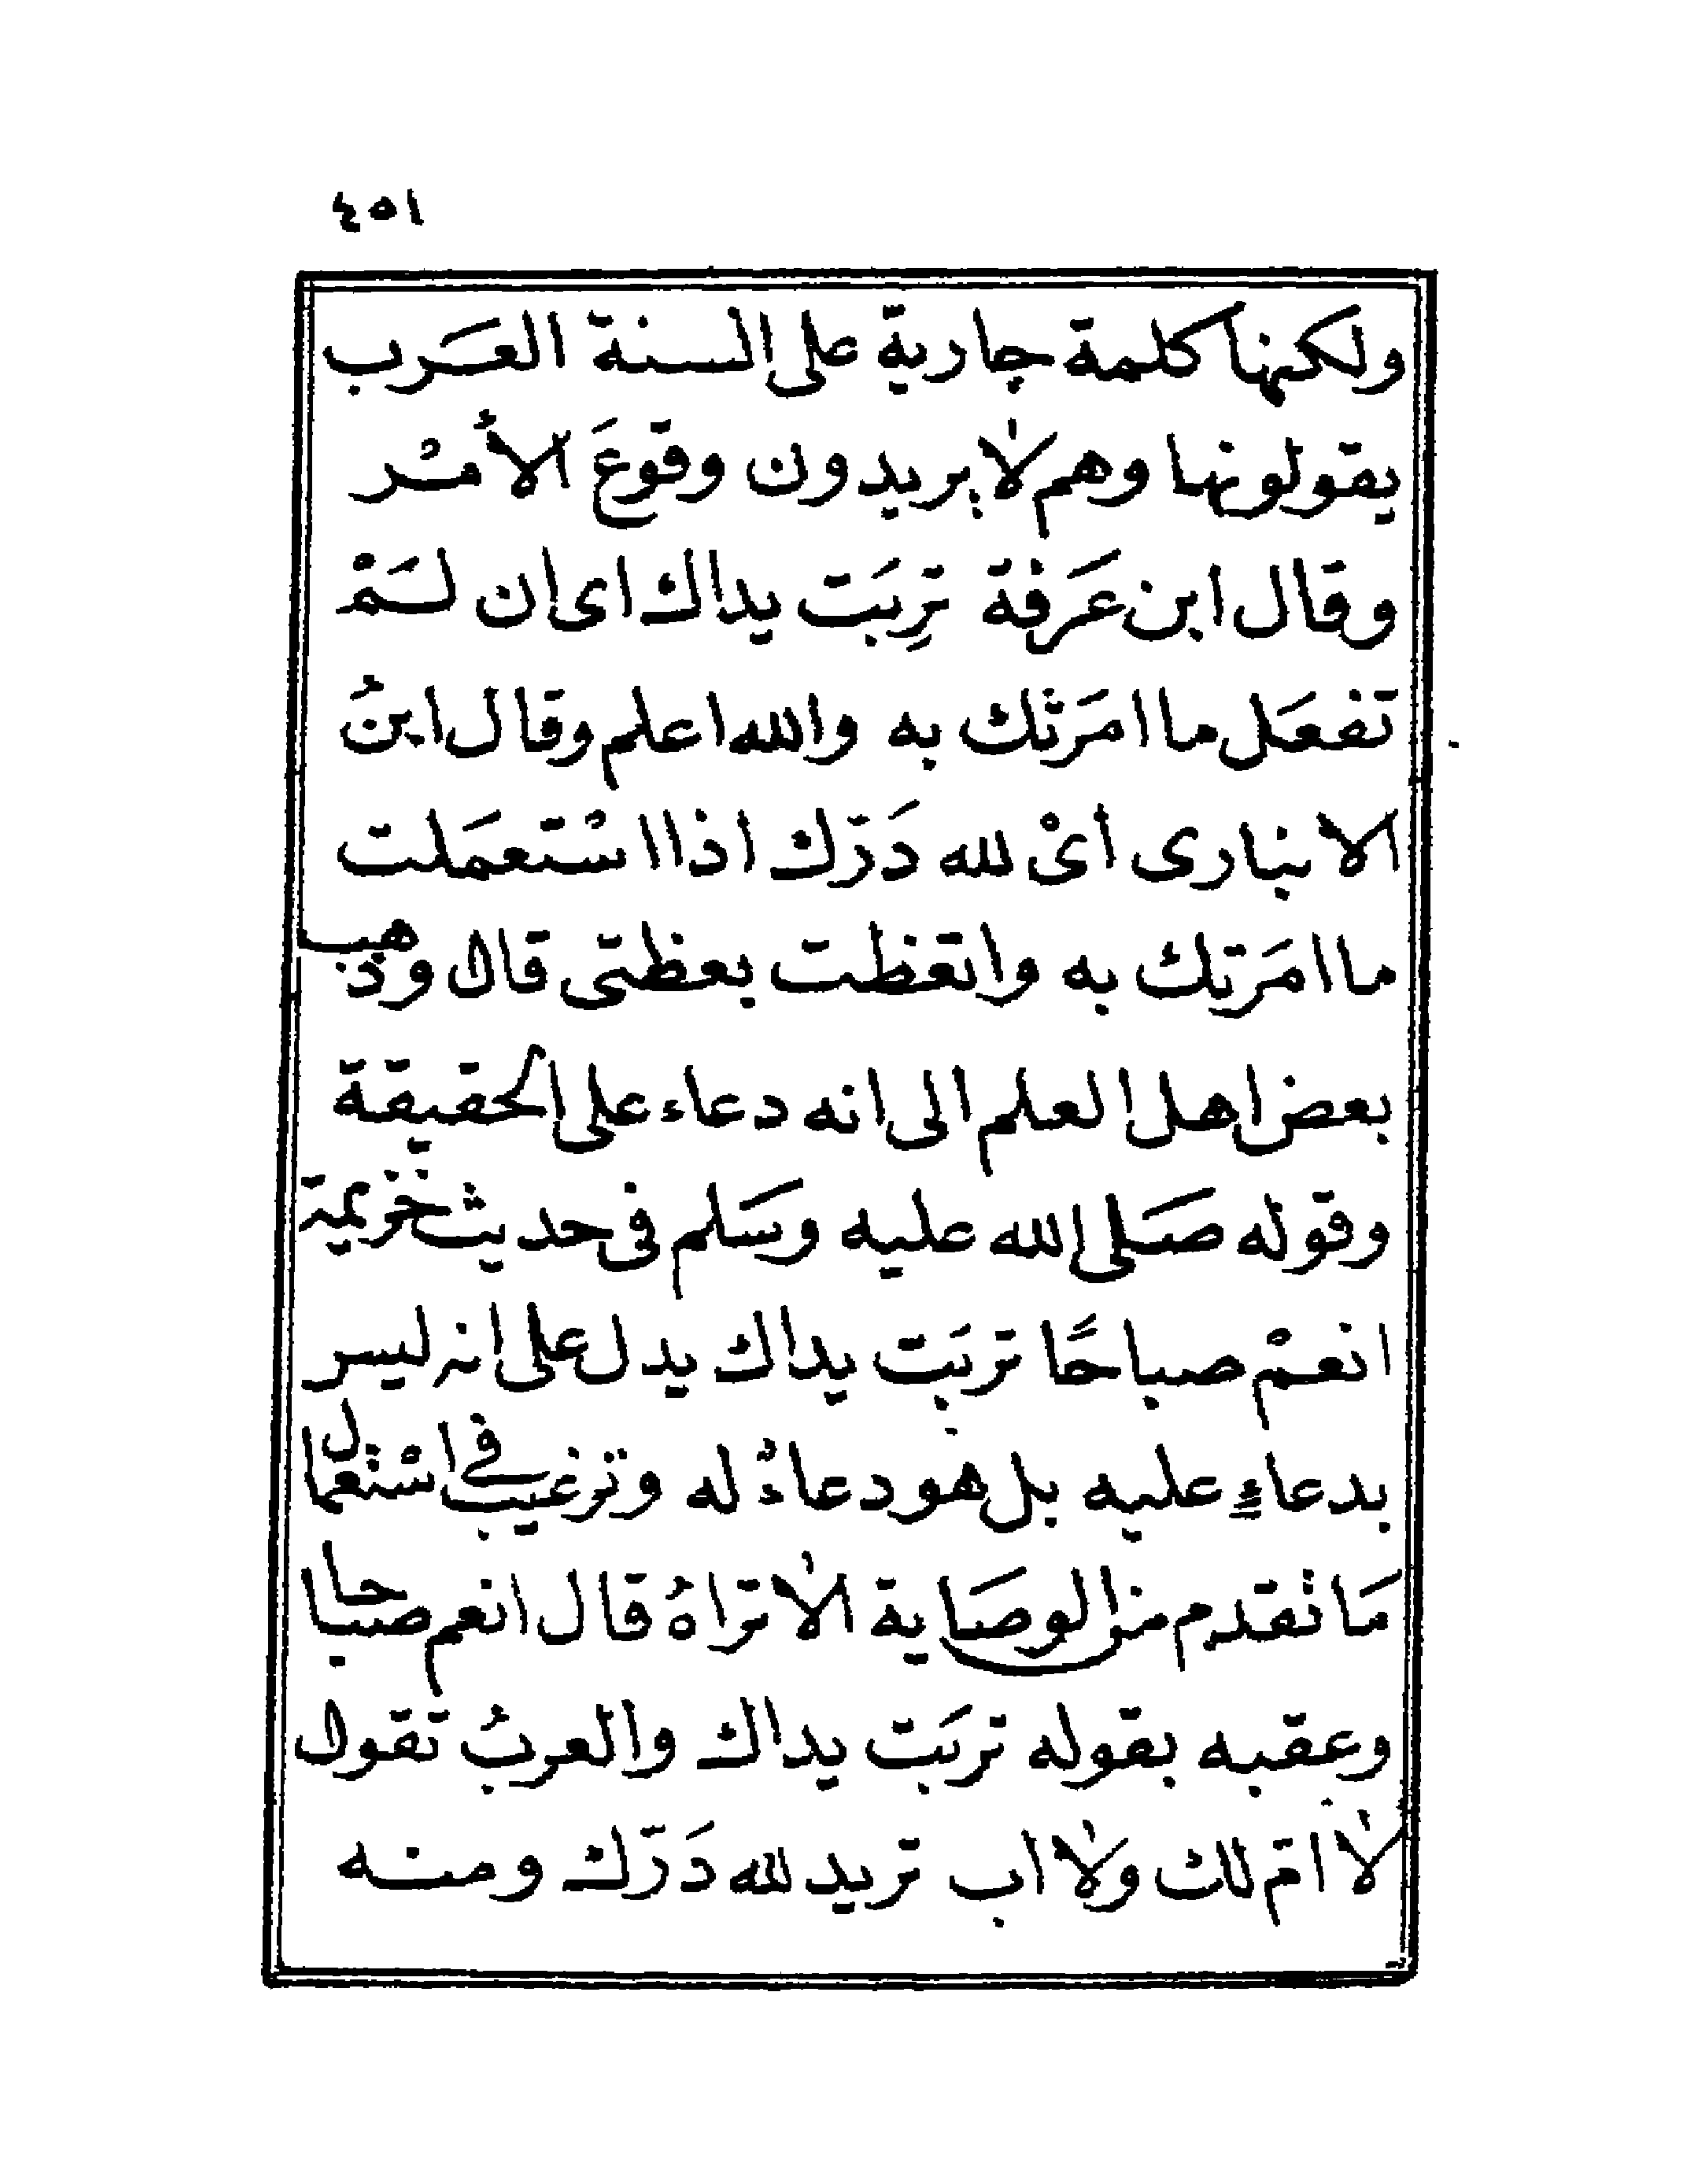 ٤٥١
ولكنها كلمة جارية على السنة العَرب
يقولونها وهم لا يريدون وقوعَ الأمْر
وقال ابن عَرفة تَرِبَت يداك اى ان لَمْ
تفعَل ما امَرتك به والله اعلم وقال ابنُ
الانبارى اىْ لله دَرّك اذا اسْتعمَلت
ما امَرتك به واتعظت بعظتى قال وذهب
بعض اهل العلم الى انه دعاء على الحقيقة
وقوله صَلى الله عليه وسَلم فى حديث خزيمة
انعمْ صباحًا تربَت يداك يدل على انه ليس
بدعاءٍ عليه بل هو دعاءٌ له وترغيب في اسْتعمال
مَا تقدم من الوصَاية الا تراهُ قال انعم صباحا
وعقبه بقوله تربَت يداك والعربُ تقول
لا امّ لك ولا اب تريد لله دَرّك ومنه